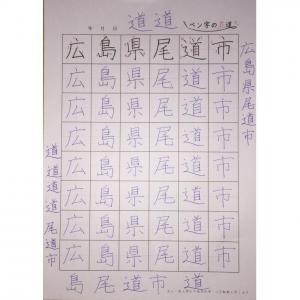 年 月 日
道 道
ペン字の
広 島 県 尾 道 市
広 島 県 尾 道 市
広 島 県 尾 道 市
広 島 県 尾 道 市
広 島 県 尾 道 市
広 島 県 尾 道 市
広 島 県 尾 道 市
広 島 県 尾 道 市
広 島 県 尾 道 市
道 道 道 道 尾 道 市
島 尾 道 市 道